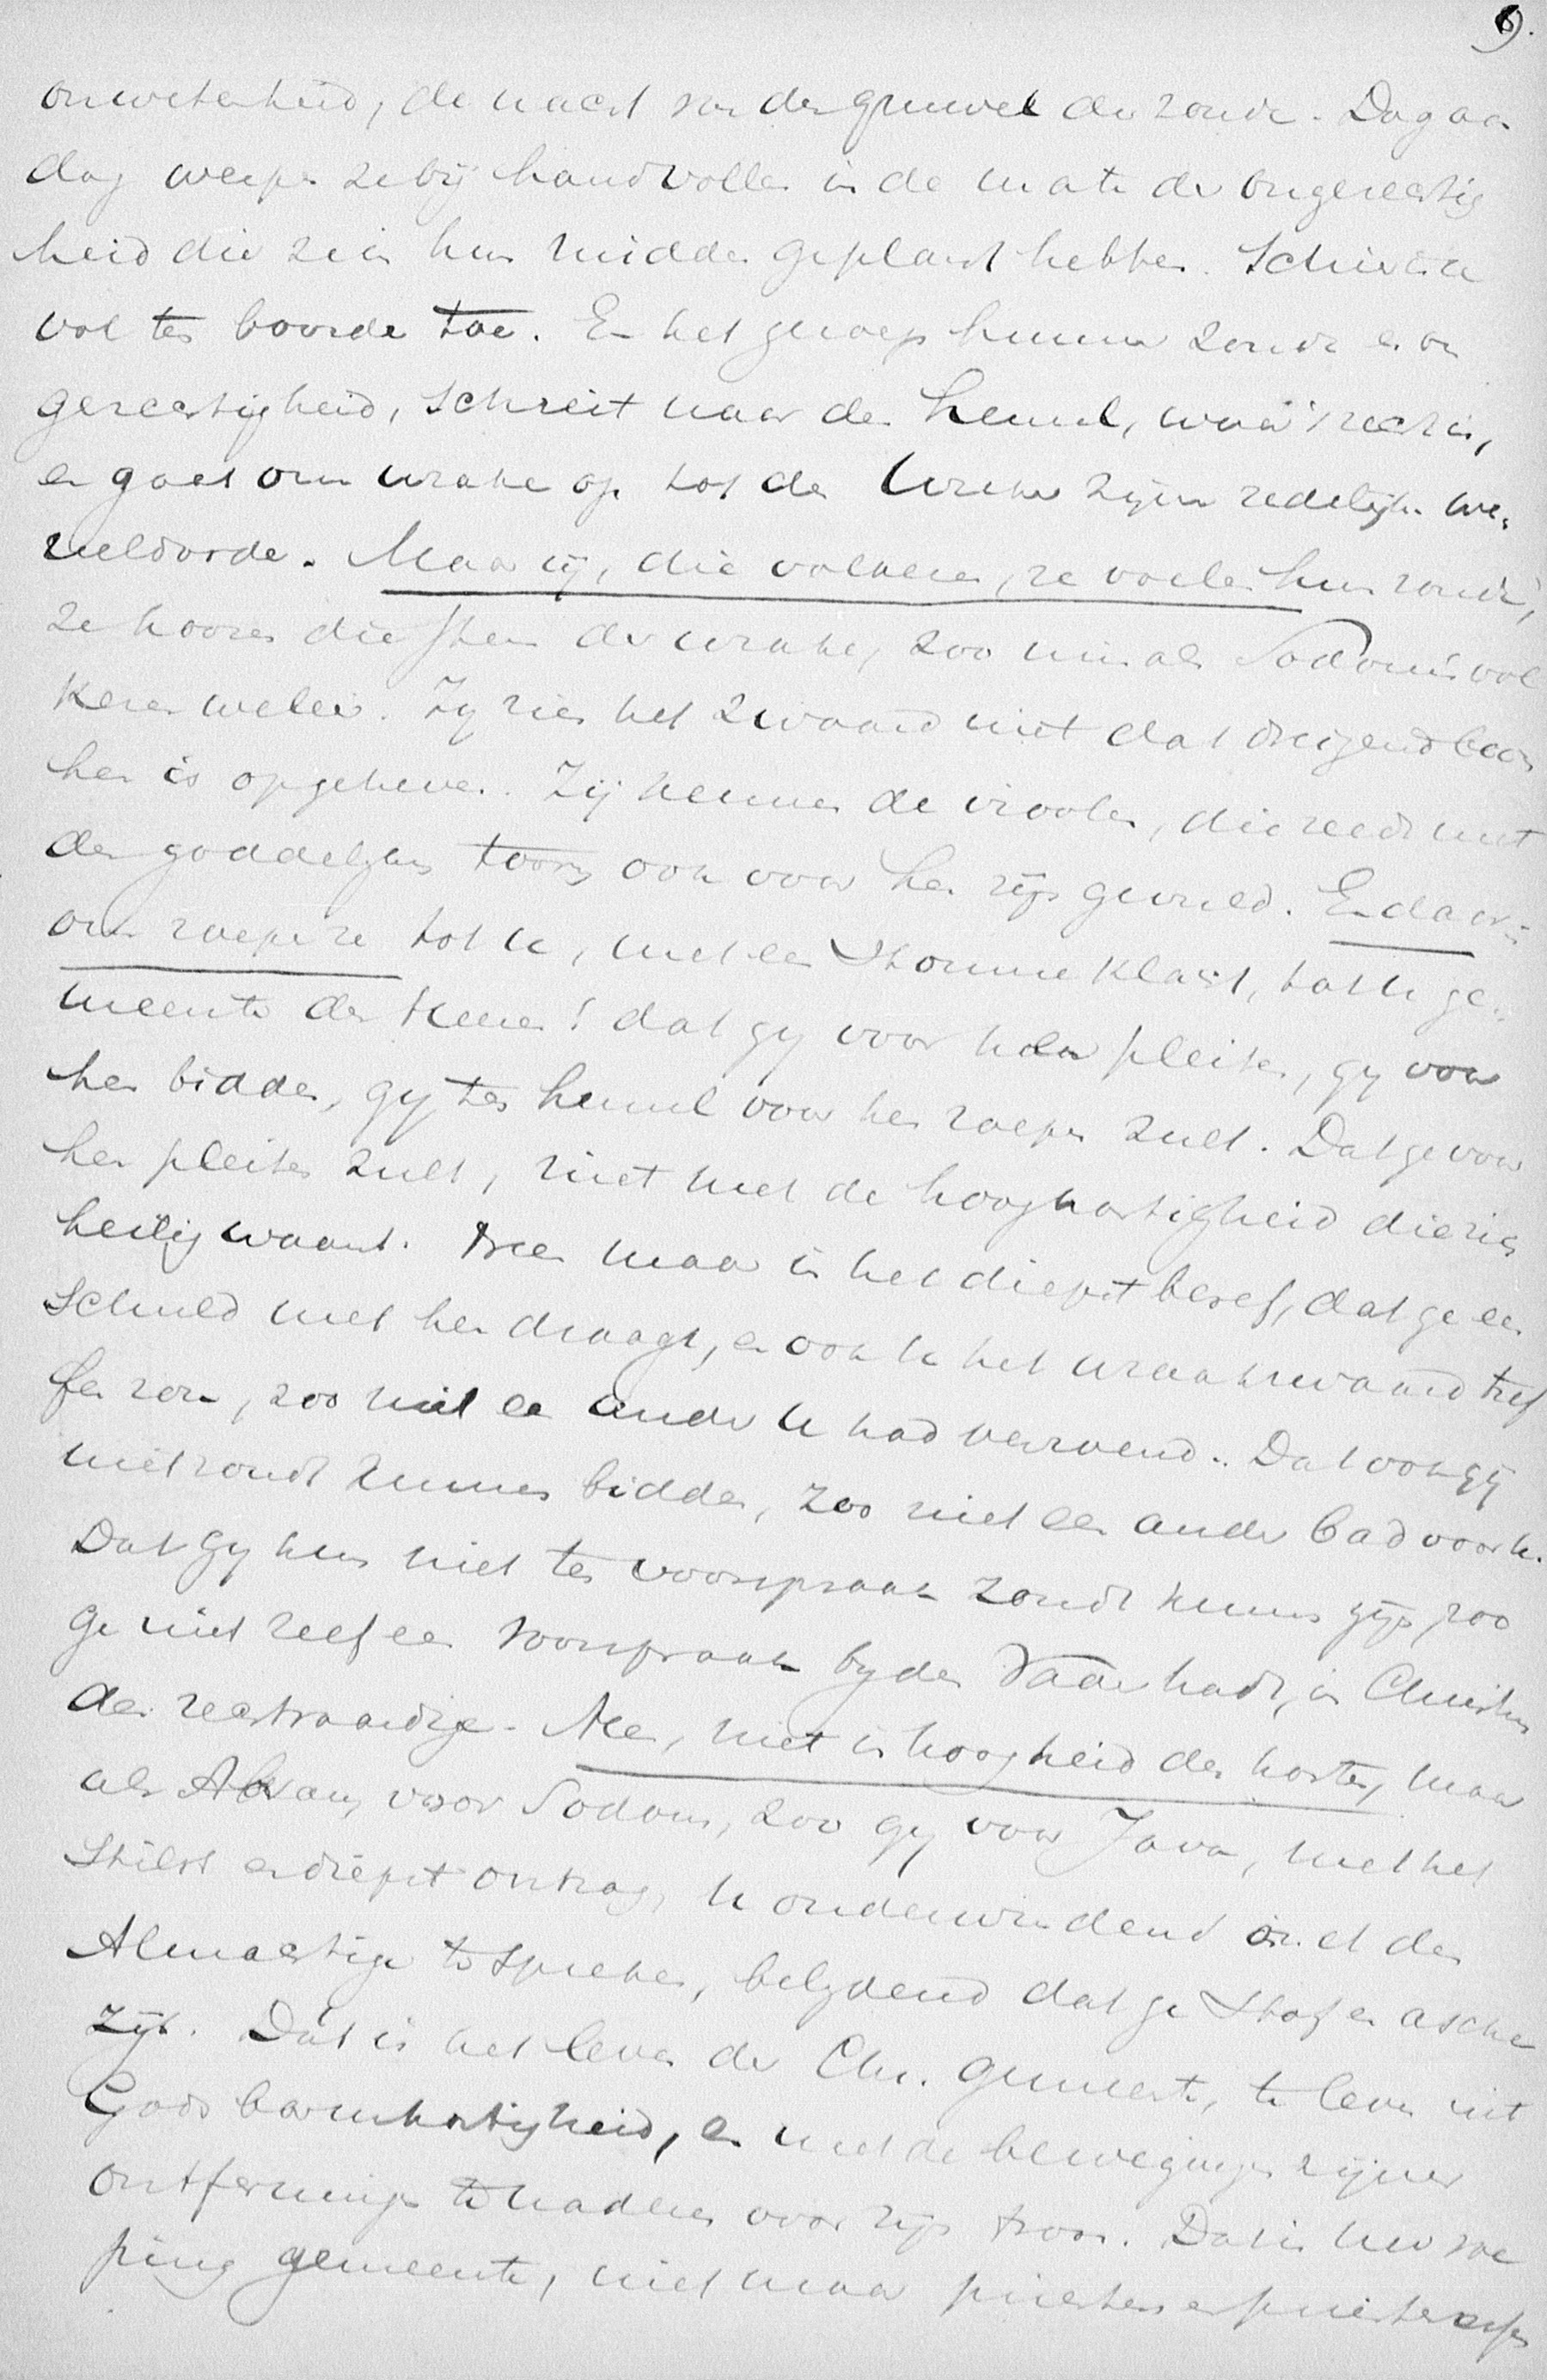 9.
onwetenheid, de nacht van den gruwel der zonde. Dag aan
dag werpen ze bij handvollen in de mate der ongerechtig
heid die ze in hun midden geplaatst hebben. Schier is ze
vol ten boorde toe. En het geroep hunner zonde en on
gerechtigheid, schreit naar den hemel, waar 't recht is,
en gaat om wrake op tot den Wreker zijner zedelijke we-
reldorde. Maar zij, die volkeren, ze voelen hun zonde,
ze hooren die stem der wrake, zoo min als Sodom's vol
keren weleer. Zij zien het zwaard niet dat dreigend boven
hen is opgeheven. Zij kennen de violen, die reeds met
den goddelijken toorn ook voor hen zijn gevuld. En daar-
om roepen ze tot u, met een stomme klacht, tot u ge-
meente des Heeren! dat gij voor hen pleiten, gij voor
hen bidden, gij ten hemel voor hen roepen zult. Dat ge voor
hen pleiten zult, niet met de hooghartigheid die zich
heilig waant. Neen maar in het diepst besef, dat ge een
schuld met hen draagt, en ook u het wraakzwaard tref
fen zou, zoo niet een ander u had verzoend. Dat ook gij
niet zoudt kunnen bidden, zoo niet een ander bad voor u.
Dat gij hun niet ten voorspraak zoudt kunnen zijn, zoo
ge niet zelf een voorspraak bij den Vader hadt, in Christus
den rechtvaardige. Neen, niet in hoogheid des harten, maar
als Abram voor Sodom, zoo gij voor Java, met het
stilst en diepst ontzag, u onderwindend met den
Almachtige te spreken, belijdend dat ge stof en asche
zijt. Dát is het leven der Chr. gemeente, te leven uit
Gods barmhartigheid, en met de bewegingen zijner
ontferming te naderen voor zijn troon. Dat is uw roe
ping gemeente, niet maar priesters en priesteressen